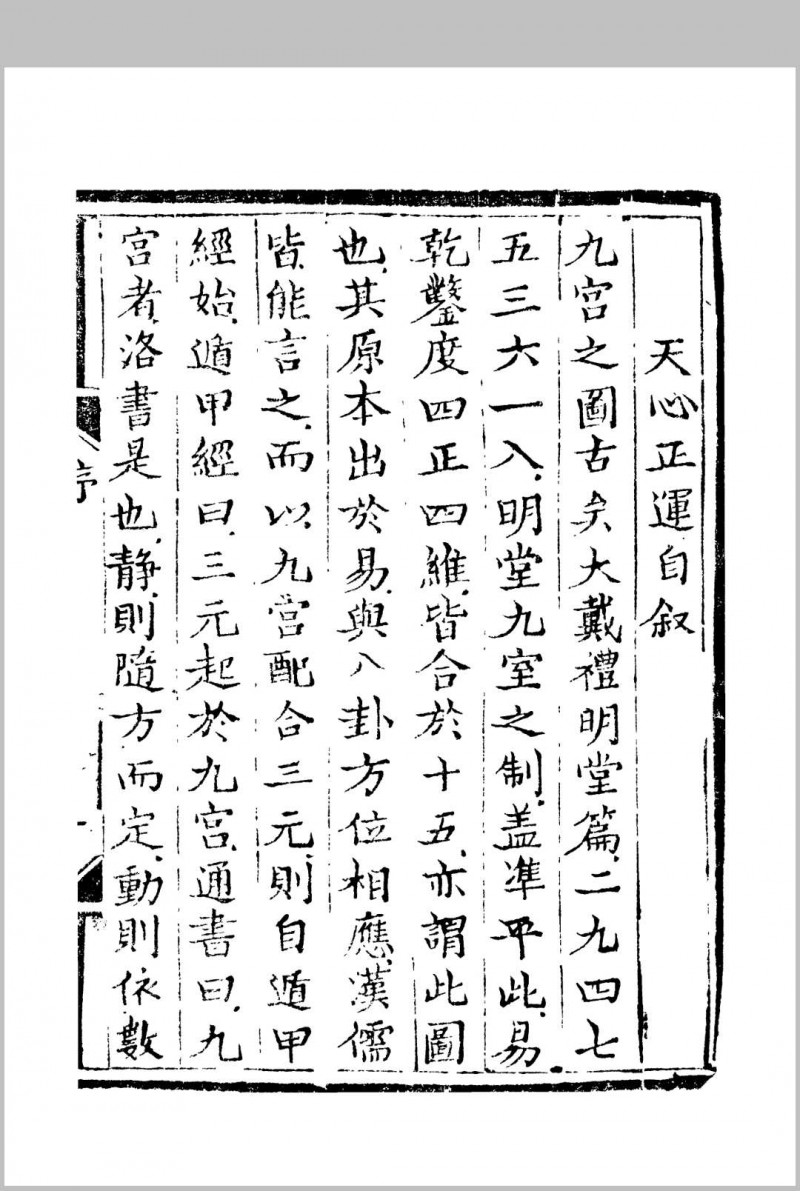 天心正運自叙
九宮之圖古矣大戴禮明堂篇二九四七
五三六一八明堂九室之制盖準乎此易
乾鑿度四正四維皆合於十五亦謂此圖
也其原本出於易與八卦方位相應漢儒
皆能言之而以九宮配合三元則自遁甲
經始遁甲經曰三元起於九宮通書曰九
宮者洛書是也靜則隨方而定動則依數
序